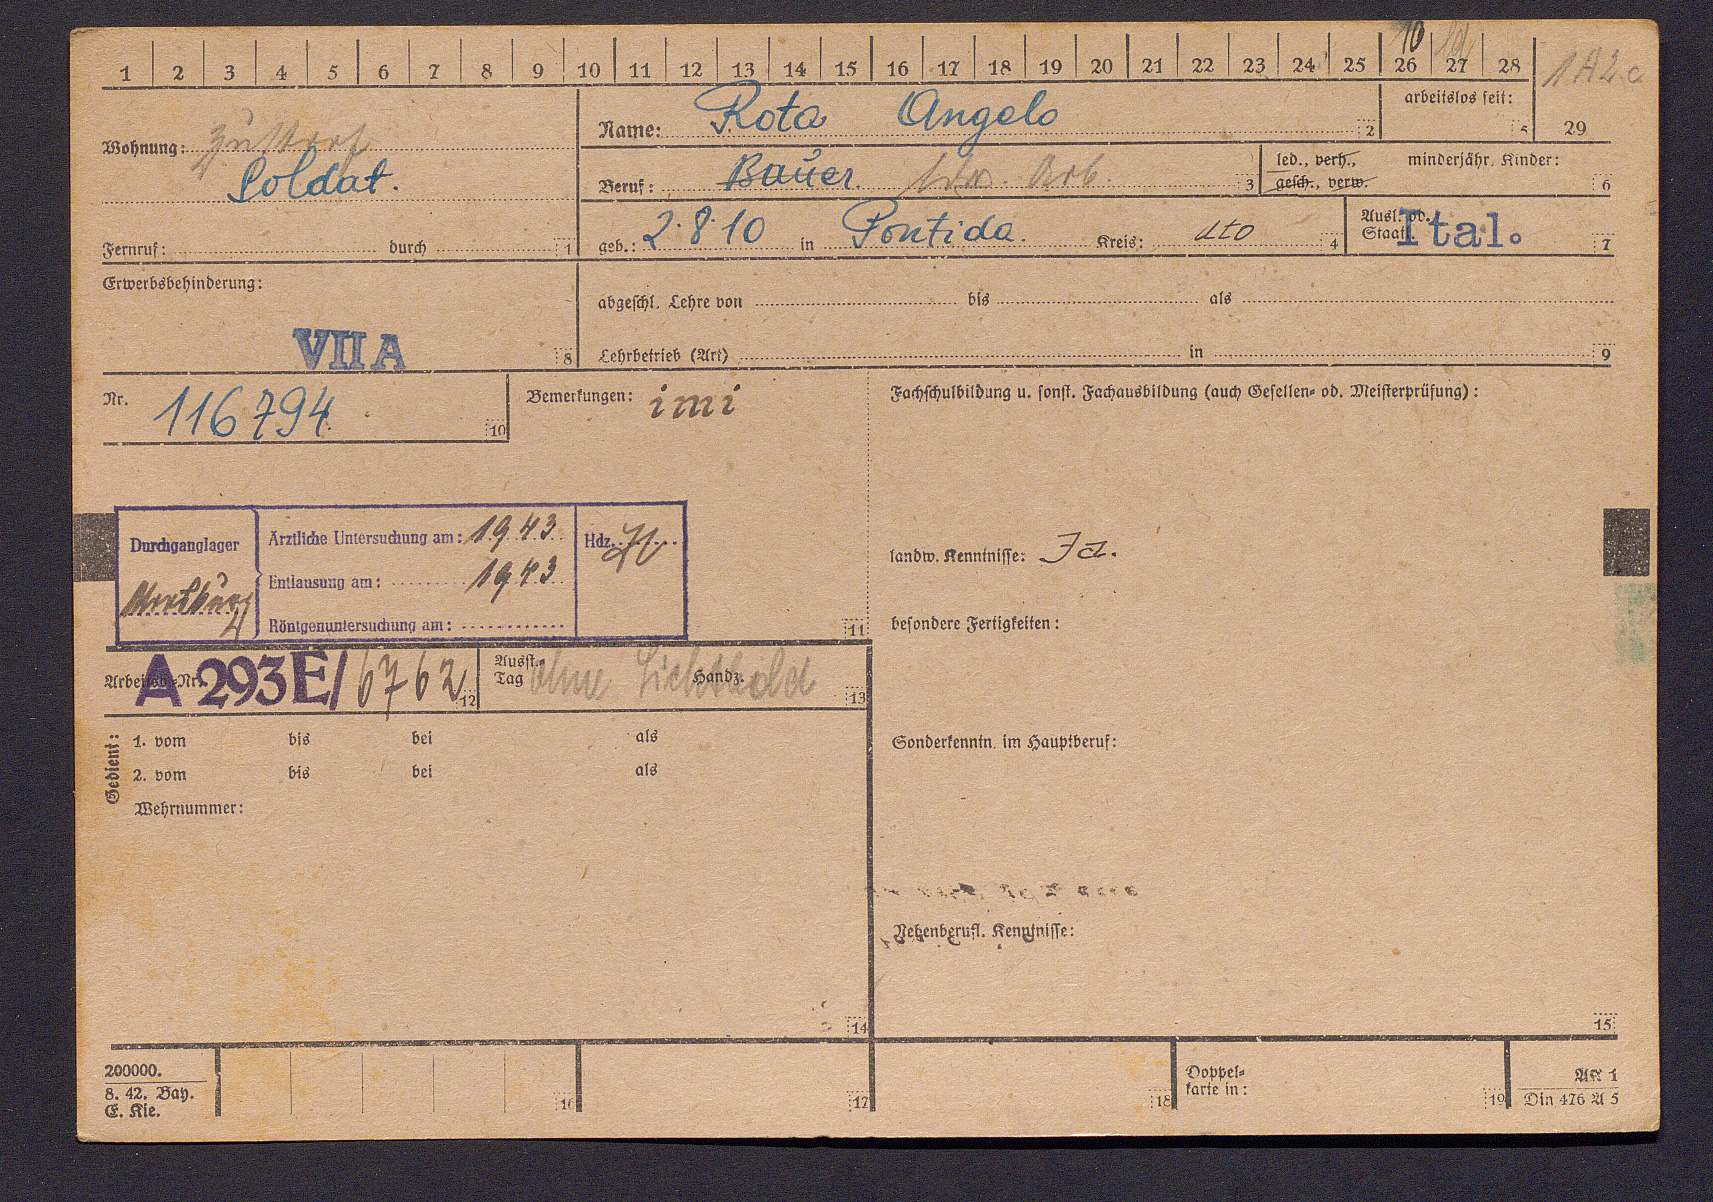 1 2 3 4 5 6 7 8 9 10 11 12 13 14 15 16 17 18 19 20 21 22 23 24 25 26 27 28
10
1A2c
arbeitslos seit:
5
29
Wohnung:
Soldat.
Fernruf: durch 1
Name: Rota Angelo 2
Beruf: Bauer. Arb. 3
led., verh.,
gesch., verw.
minderjähr. Kinder:
6
geb.: 2.8.10 in Pontida. Kreis: dto 4
Ausl. od.
Staatl. Ital. 7
Erwerbsbehinderung:
VII A 8
abgeschl. Lehre von bis als
Lehrbetrieb (Art) in 9
Nr. 116794 10
Bemerkungen: imi
Fachschulbildung u. sonst. Fachausbildung (auch Gesellen= od. Meisterprüfung):
Durchganglager
Ärztliche Untersuchung am: 1943
Entlausung am: 1943
Röntgenuntersuchung am:
Hdz.
11
landw. Kenntnisse: Ja.
besondere Fertigkeiten:
Arbeitsb.-Nr. A 293E/6762 12
Ausst.
Tag ohne Handz. 13
Gedient:
1. vom bis bei als
2. vom bis bei als
Wehrnummer:
14
Sonderkenntn. im Hauptberuf:
Nebenberufl. Kenntnisse:
15
200000.
8. 42. Bay.
E. Kie.
16
17
18
Doppel=
karte in:
19
AK 1
Din 476 A 5